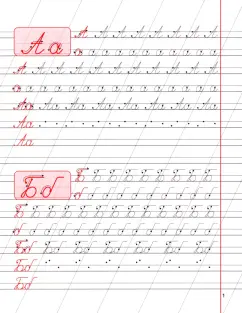 Аа А А А А А А А А А
а а а а а а а а а а
А А А А А А А А А А
а а а а а а а а а а а
Аа Аа Аа Аа Аа Аа Аа
Аа
Аа
Бб Б Б Б Б Б Б Б Б
б б б б б б б б б
Б Б Б Б Б Б Б Б Б Б
б б б б б б б б б б
Бб Бб Бб Бб Бб Бб
Бб
Бб
1